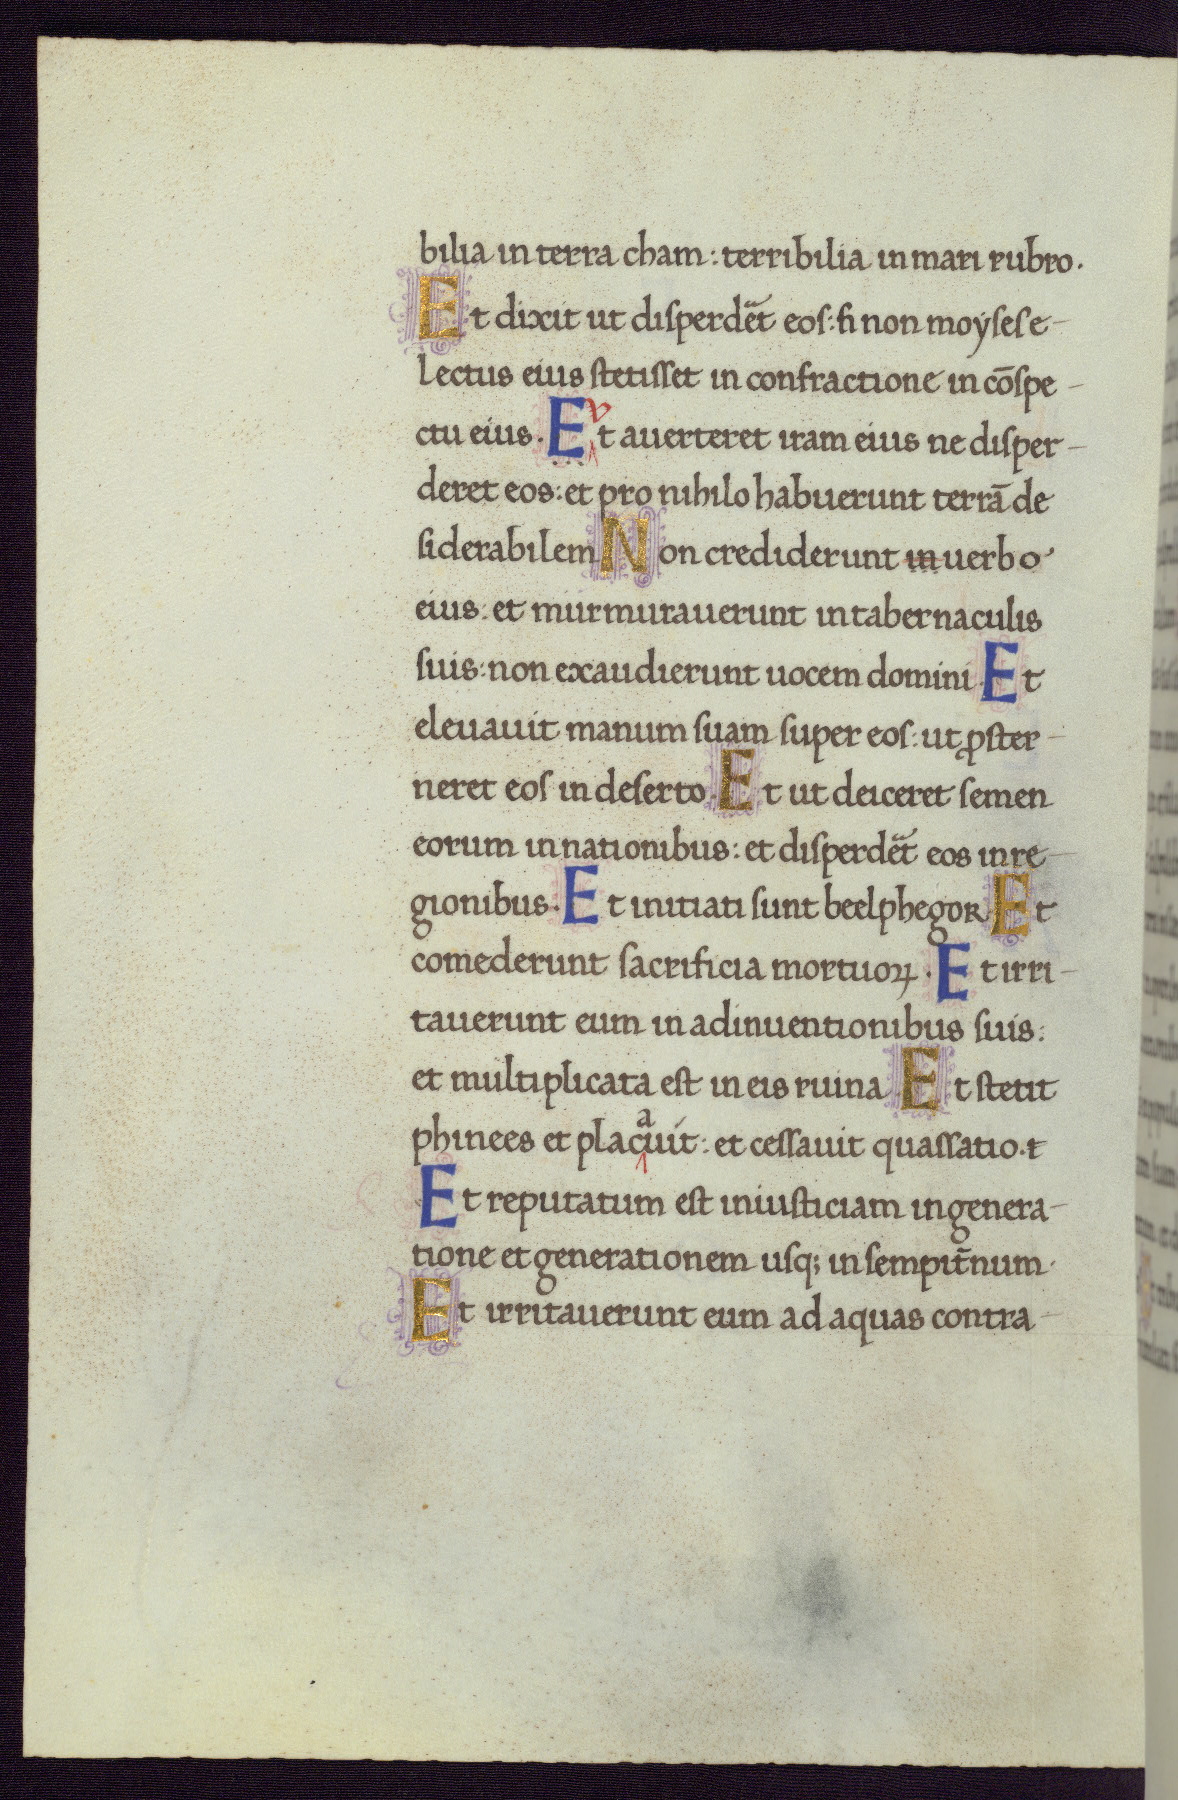 bilia in terra cham: terribilia in mari rubro.
Et dixit ut disperdēt eos: si non moyses e-
lectus eius stetisset in confractione in cōspe-
ctu eius. Et averteret iram eius ne disper-
deret eos: et pro nihilo habuerunt terrā de
siderabilem Non crediderunt in uerbo
eius: et murmurauerunt in tabernaculis
suis: non exaudierunt uocem domini. Et
eleuauit manum suam super eos: ut ꝓster-
neret eos in deserto. Et ut deiceret semen
eorum in nationibus: et disperdēt eos in re-
gionibus. Et initiati sunt beelphegor. Et
comederunt sacrificia mortuoꝝ. Et irri-
tauerunt eum in adinuentionibus suis:
et multiplicata est in eis ruina. Et stetit
phinees et placauit: et cessauit quassatio. t
Et reputatum est iniusticiam in genera-
tione et generationem usq; in sempit̄num.
Et irritauerunt eum ad aquas contra-